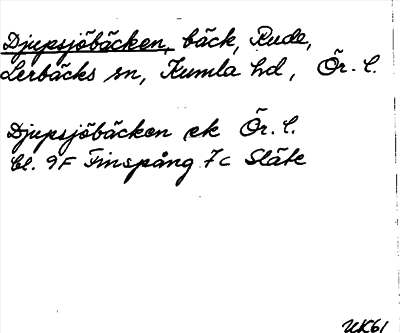 Djupsjöbäcken, bäck, Rude,
Lerbäcks sn, Kumla hd, Ör. l.
Djupsjöbäcken ek Ör. l.
bl. 9F Finspång 7c Släte
UK61